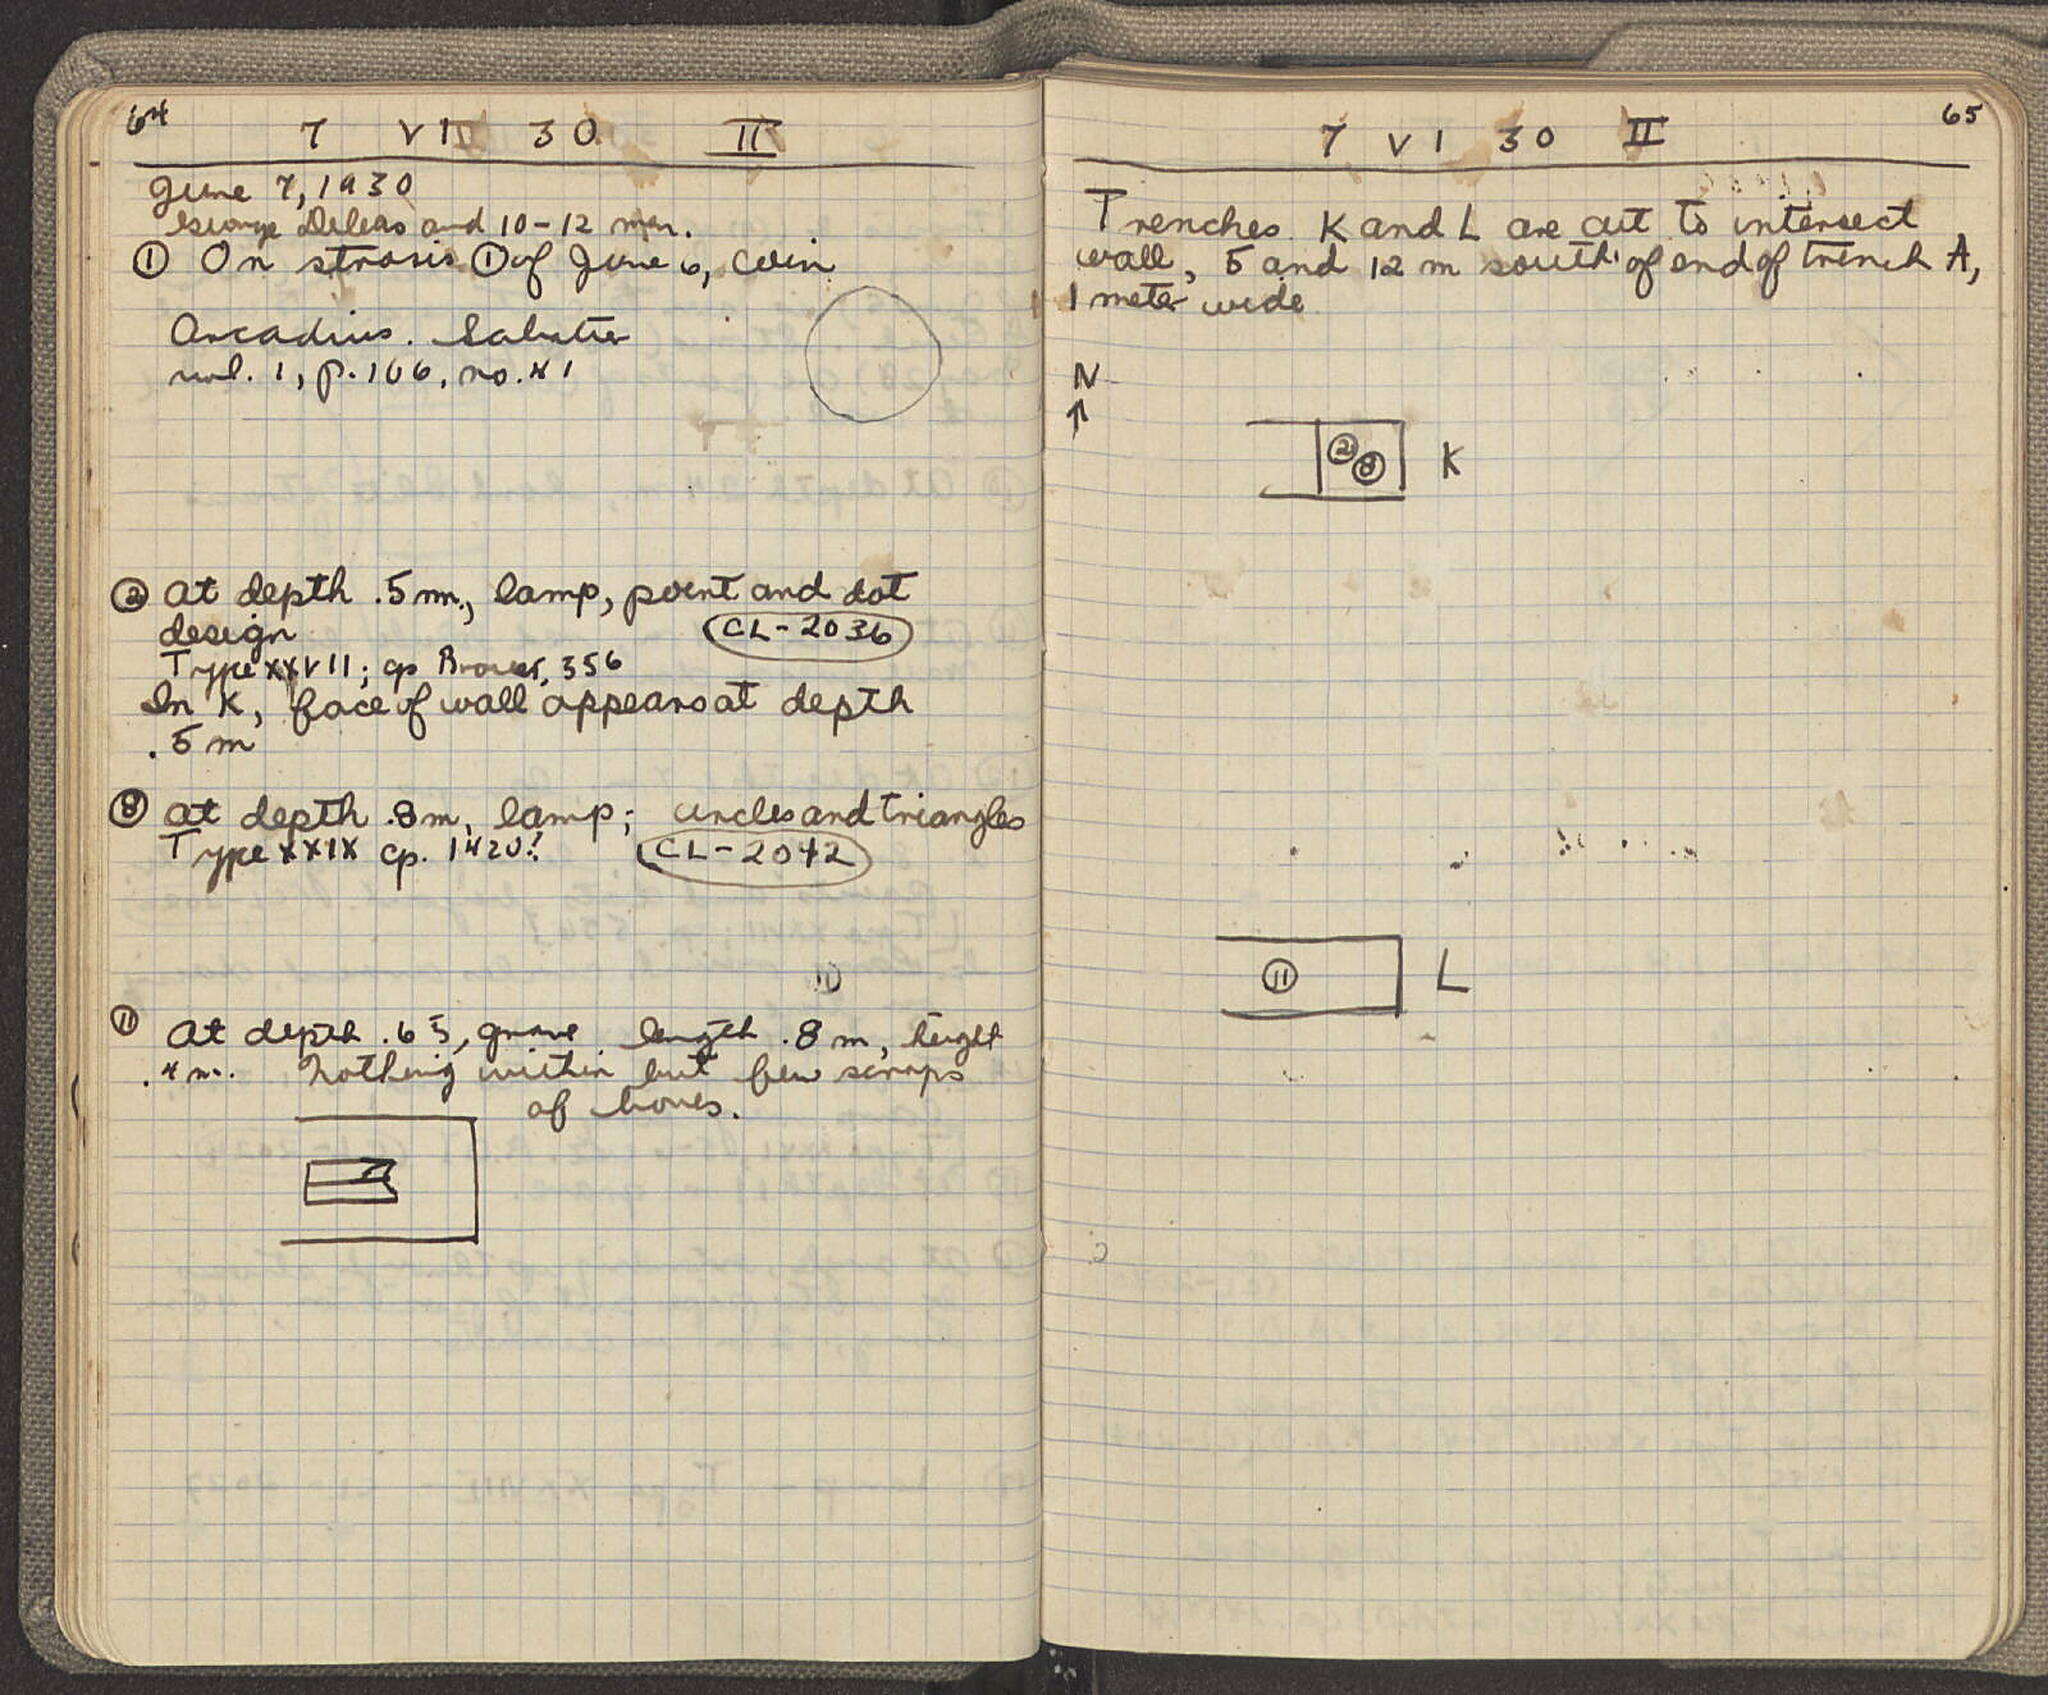 64
7 VI 30 II
June 7, 1930
George Deleas and 10-12 men.
① On strosis ① of June 6, coin
Arcadius. Sabatier
vol. 1, p. 106, no. 41
② At depth .5 m., lamp, point and dot
design CL-2036
Type XXVII; cp Broneer, 356
In K, face of wall appears at depth
.5 m
⑧ At depth .8 m, lamp; circles and triangles
Type XXIX cp. 1420! CL-2042
10
⑪ At depth .65, grave length .8 m, height
.4 m. Nothing within but few scraps
of bones.
65
7 VI 30 II
Trenches K and L are cut to intersect
wall, 5 and 12 m south of end of trench A,
1 meter wide
N
② ⑧ K
⑪ L